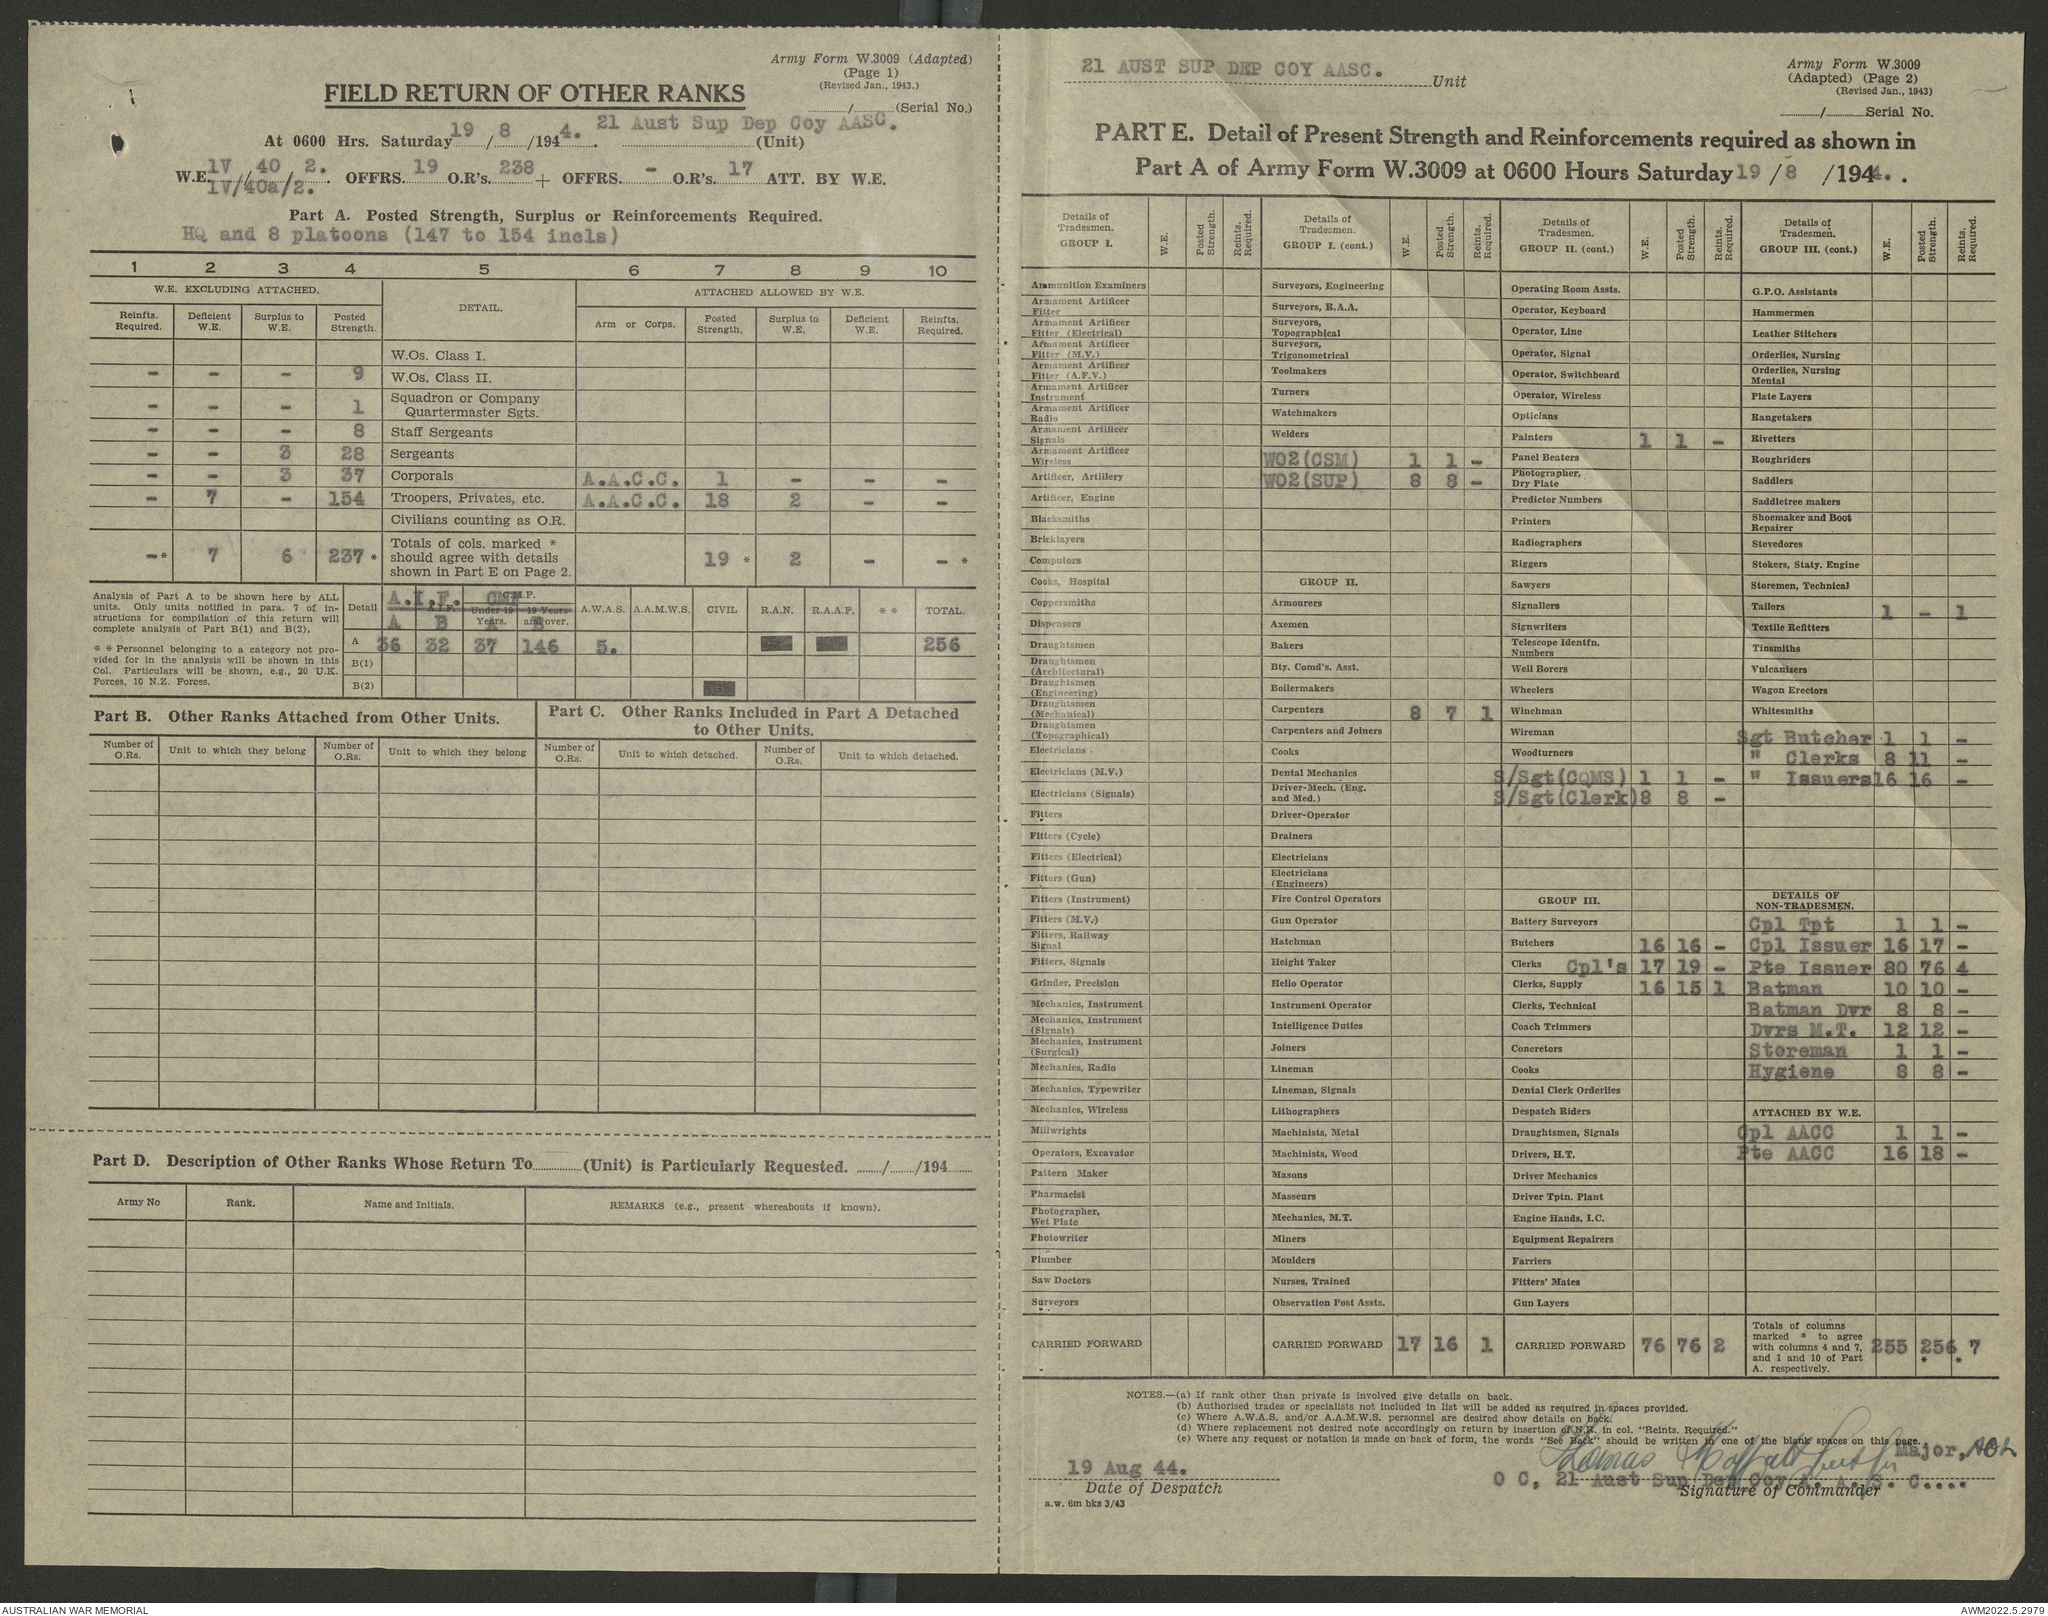 Army Form W.3009 (Adapted)
(Page 1)
(Revised Jan., 1943.)
FIELD RETURN OF OTHER RANKS
/ (Serial No.)
At 0600 Hrs. Saturday 19 / 8 /1944. 21 Aust Sup Dep Coy AASC. (Unit)
W.E. 1V / 40 / 2. OFFRS. 19 O.R's. 238 + OFFRS. - O.R's. 17 ATT. BY W.E.
1V/40a/2.
Part A. Posted Strength, Surplus or Reinforcements Required.
HQ and 8 platoons (147 to 154 incls)
1 2 3 4 5 6 7 8 9 10
W.E. EXCLUDING ATTACHED. DETAIL. ATTACHED ALLOWED BY W.E.
Reinfts. Required. Deficient W.E. Surplus to W.E. Posted Strength. Arm or Corps. Posted Strength. Surplus to W.E. Deficient W.E. Reinfts. Required.
W.Os. Class I.
- - - 9 W.Os. Class II.
- - - 1 Squadron or Company Quartermaster Sgts.
- - - 8 Staff Sergeants
- - 3 28 Sergeants
- - 3 37 Corporals A.A.C.C. 1 - - -
- 7 - 154 Troopers, Privates, etc. A.A.C.C. 18 2 - -
Civilians counting as O.R.
-* 7 6 237 * Totals of cols. marked * should agree with details shown in Part E on Page 2. 19 * 2 - - *
Analysis of Part A to be shown here by ALL units. Only units notified in para. 7 of instructions for compilation of this return will complete analysis of Part B(1) and B(2).
* * Personnel belonging to a category not provided for in the analysis will be shown in this Col. Particulars will be shown, e.g., 20 U.K. Forces, 10 N.Z. Forces.
Detail A.I.F. CMF A.I.F. C.M.F. Under 19 Years. 19 Years and over. A.W.A.S. A.A.M.W.S. CIVIL R.A.N. R.A.A.F. * * TOTAL.
A B A B
A 36 32 37 146 5. 256
B(1)
B(2)
Part B. Other Ranks Attached from Other Units.
Number of O.Rs. Unit to which they belong Number of O.Rs. Unit to which they belong
Part C. Other Ranks Included in Part A Detached to Other Units.
Number of O.Rs. Unit to which detached. Number of O.Rs. Unit to which detached.
Part D. Description of Other Ranks Whose Return To (Unit) is Particularly Requested. / /194
Army No Rank. Name and Initials. REMARKS (e.g., present whereabouts if known).
21 AUST SUP DEP COY AASC. Unit
Army Form W.3009
(Adapted) (Page 2)
(Revised Jan., 1943)
/ Serial No.
PART E. Detail of Present Strength and Reinforcements required as shown in
Part A of Army Form W.3009 at 0600 Hours Saturday 19 / 8 /1944. .
Details of Tradesmen. GROUP I. W.E. Posted Strength. Reints. Required.
Ammunition Examiners
Armament Artificer Fitter
Armament Artificer Fitter (Electrical)
Armament Artificer Fitter (M.V.)
Armament Artificer Fitter (A.F.V.)
Armament Artificer Instrument
Armament Artificer Radio
Armament Artificer Signals
Armament Artificer Wireless
Artificer, Artillery
Artificer, Engine
Blacksmiths
Bricklayers
Computors
Cooks, Hospital
Coppersmiths
Dispensers
Draughtsmen
Draughtsmen (Architectural)
Draughtsmen (Engineering)
Draughtsmen (Mechanical)
Draughtsmen (Topographical)
Electricians
Electricians (M.V.)
Electricians (Signals)
Fitters
Fitters (Cycle)
Fitters (Electrical)
Fitters (Gun)
Fitters (Instrument)
Fitters (M.V.)
Fitters, Railway Signal
Fitters, Signals
Grinder, Precision
Mechanics, Instrument
Mechanics, Instrument (Signals)
Mechanics, Instrument (Surgical)
Mechanics, Radio
Mechanics, Typewriter
Mechanics, Wireless
Millwrights
Operators, Excavator
Pattern Maker
Pharmacist
Photographer, Wet Plate
Photowriter
Plumber
Saw Doctors
Surveyors
CARRIED FORWARD
Details of Tradesmen. GROUP I. (cont.) W.E. Posted Strength. Reints. Required.
Surveyors, Engineering
Surveyors, R.A.A.
Surveyors, Topographical
Surveyors, Trigonometrical
Toolmakers
Turners
Watchmakers
Welders
WO2(CSM) 1 1 -
WO2(SUP) 8 8 -
GROUP II.
Armourers
Axemen
Bakers
Bty. Comd's. Asst.
Boilermakers
Carpenters 8 7 1
Carpenters and Joiners
Cooks
Dental Mechanics
Driver-Mech. (Eng. and Med.)
Driver-Operator
Drainers
Electricians
Electricians (Engineers)
Fire Control Operators
Gun Operator
Hatchman
Height Taker
Helio Operator
Instrument Operator
Intelligence Duties
Joiners
Lineman
Lineman, Signals
Lithographers
Machinists, Metal
Machinists, Wood
Masons
Masseurs
Mechanics, M.T.
Miners
Moulders
Nurses, Trained
Observation Post Assts.
CARRIED FORWARD 17 16 1
Details of Tradesmen. GROUP II. (cont.) W.E. Posted Strength. Reints. Required.
Operating Room Assts.
Operator, Keyboard
Operator, Line
Operator, Signal
Operator, Switchboard
Operator, Wireless
Opticians
Painters 1 1 -
Panel Beaters
Photographer, Dry Plate
Predictor Numbers
Printers
Radiographers
Riggers
Sawyers
Signallers
Signwriters
Telescope Identfn. Numbers
Well Borers
Wheelers
Winchman
Wireman
Woodturners
S/Sgt(CQMS) 1 1 -
S/Sgt(Clerk) 8 8 -
GROUP III.
Battery Surveyors
Butchers 16 16 -
Clerks Cpl's 17 19 -
Clerks, Supply 16 15 1
Clerks, Technical
Coach Trimmers
Concretors
Cooks
Dental Clerk Orderlies
Despatch Riders
Draughtsmen, Signals
Drivers, H.T.
Driver Mechanics
Driver Tptn. Plant
Engine Hands, I.C.
Equipment Repairers
Farriers
Fitters' Mates
Gun Layers
CARRIED FORWARD 76 76 2
Details of Tradesmen. GROUP III. (cont.) W.E. Posted Strength. Reints. Required.
G.P.O. Assistants
Hammermen
Leather Stitchers
Orderlies, Nursing
Orderlies, Nursing Mental
Plate Layers
Rangetakers
Rivetters
Roughriders
Saddlers
Saddletree makers
Shoemaker and Boot Repairer
Stevedores
Stokers, Staty. Engine
Storemen, Technical
Tailors 1 - 1
Textile Refitters
Tinsmiths
Vulcanizers
Wagon Erectors
Whitesmiths
Sgt Butcher 1 1 -
" Clerks 8 11 -
" Issuers 16 16 -
DETAILS OF NON-TRADESMEN.
Cpl Tpt 1 1 -
Cpl Issuer 16 17 -
Pte Issuer 80 76 4
Batman 10 10 -
Batman Dvr 8 8 -
Dvrs M.T. 12 12 -
Storeman 1 1 -
Hygiene 8 8 -
ATTACHED BY W.E.
Cpl AACC 1 1 -
Pte AACC 16 18 -
Totals of columns marked * to agree with columns 4 and 7, and 1 and 10 of Part A. respectively. 255 256 * 7 *
NOTES.—(a) If rank other than private is involved give details on back.
(b) Authorised trades or specialists not included in list will be added as required in spaces provided.
(c) Where A.W.A.S. and/or A.A.M.W.S. personnel are desired show details on back.
(d) Where replacement not desired note accordingly on return by insertion of N.R. in col. "Reints. Required."
(e) Where any request or notation is made on back of form, the words "See Back" should be written in one of the blank spaces on this page.
Thomas Moffatt Major,
19 Aug 44. O C, 21 Aust Sup Dep Coy A. A. S. C....
Date of Despatch Signature of Commander
a.w. 6m bks 3/43
AUSTRALIAN WAR MEMORIAL AWM2022.5.2979